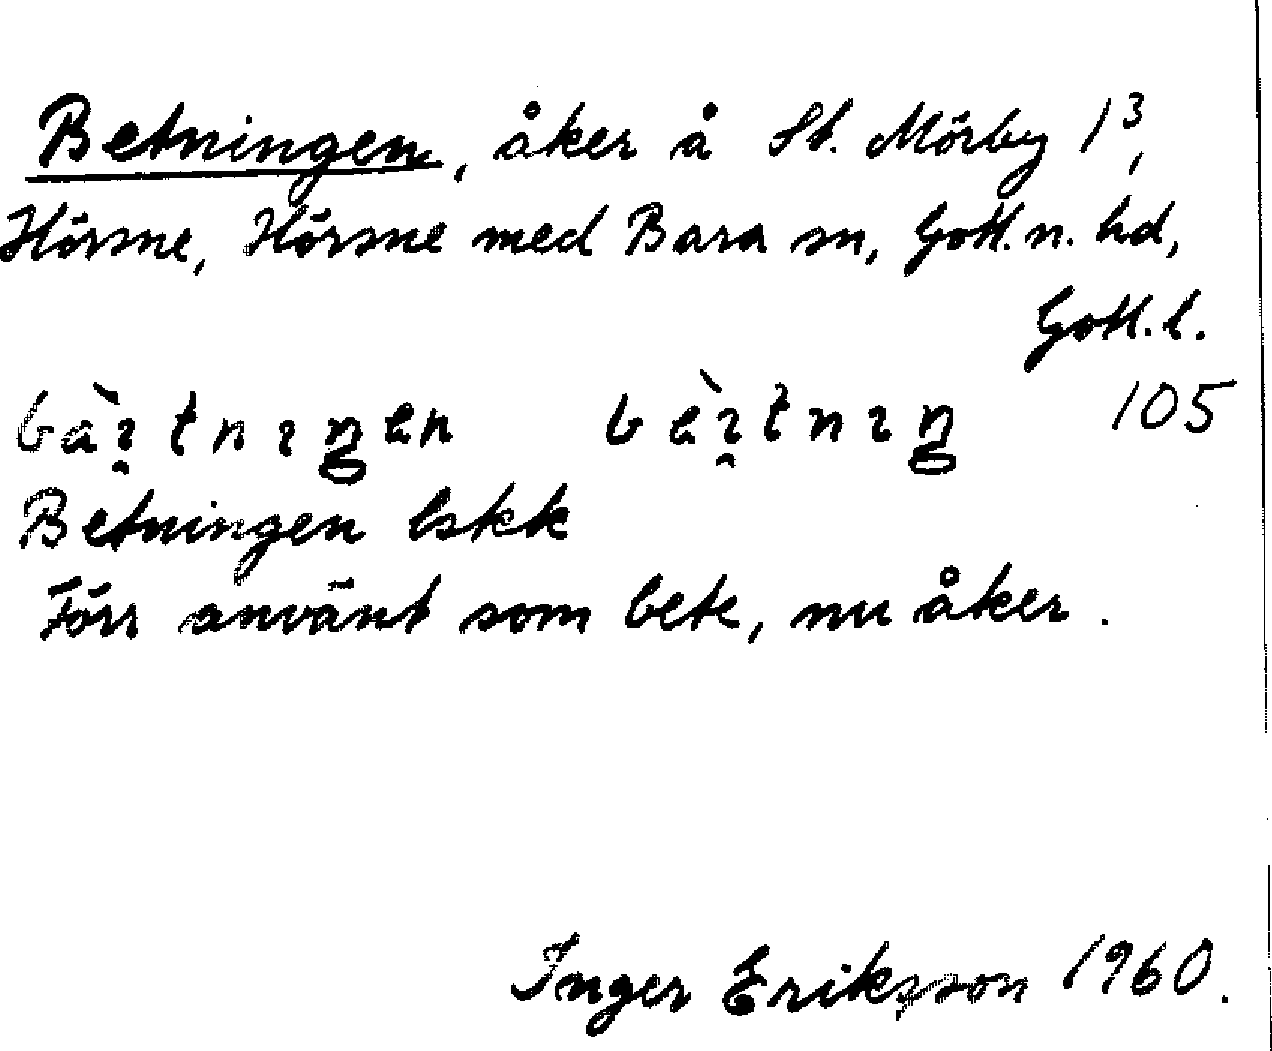 Betningen, åker å St. Mörby 1³,
Hörsne, Hörsne med Bara sn, Gotl. n. hd,
Gotl. l.
105
Betningen lskk
Förr använt som bete, nu åker.
Inger Eriksson 1960.